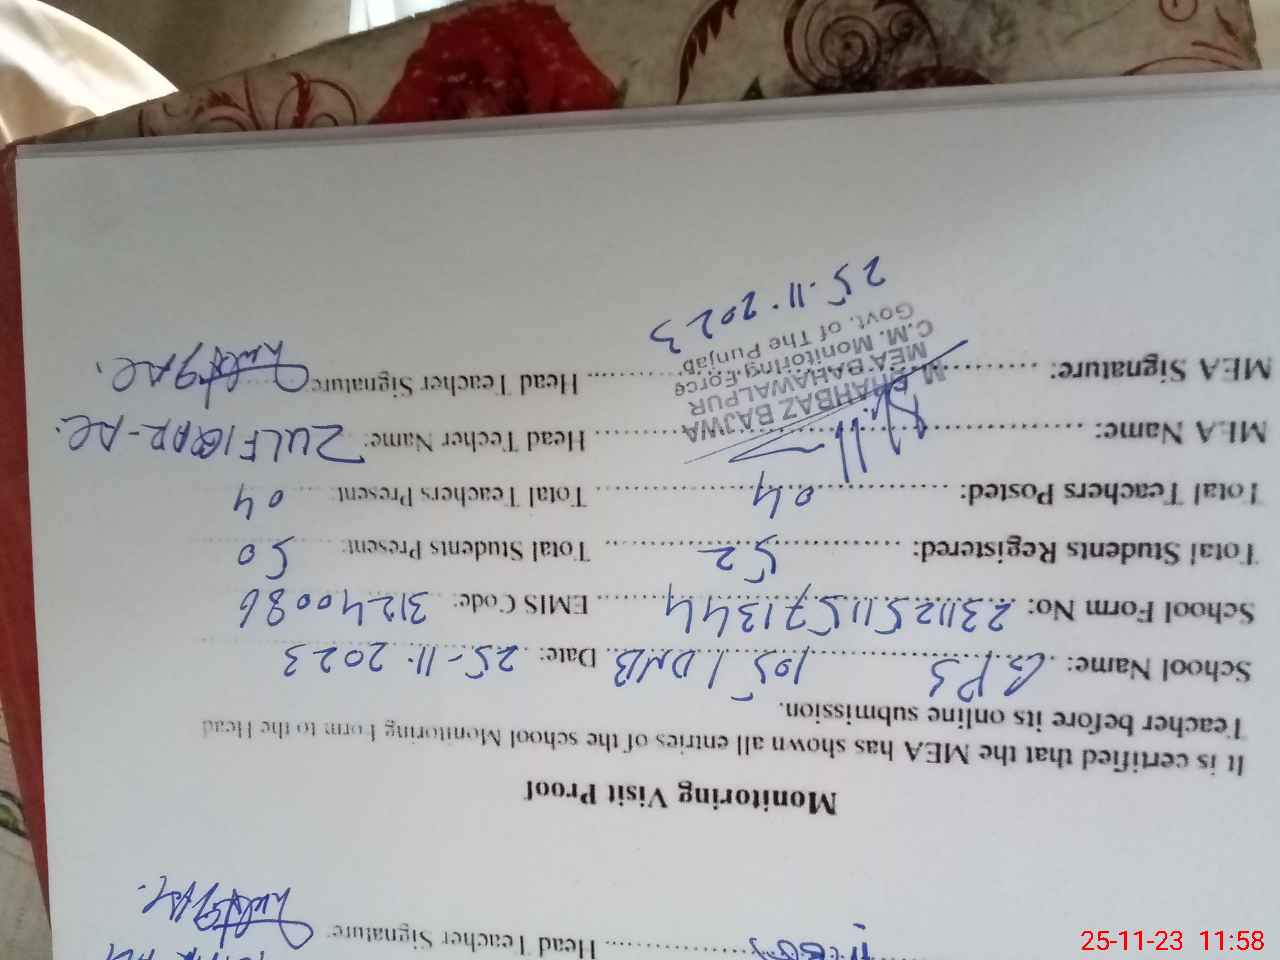 Monitoring Visit Proof
It is certified that the MEA has shown all entries of the school Monitoring Form to the Head
Teacher before its online submission.
School Name: G.P.S 105/DNB Date: 25-11-2023
School Form No: 23112511571344 EMIS Code: 31240086
Total Students Registered: 52 Total Students Present: 50
Total Teachers Posted: 04 Total Teachers Present: 04
MEA Name: Head Techer Name: ZULFIQAR-AL.
MEA Signature: Head Teacher Signature
M. SHAHBAZ BAJWA
MEA BAHAWALPUR
C.M. Monitoring Force
Govt. of The Punjab
25.11.2023
Head Teacher Signature
25-11-23 11:58